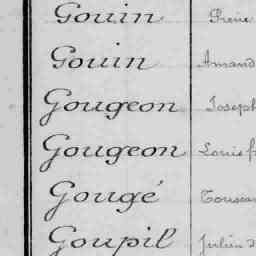 Gouin
Gouin Amand
Gougeon Joseph
Gougeon Louis f
Gougé Toussa
Goupil Julien d